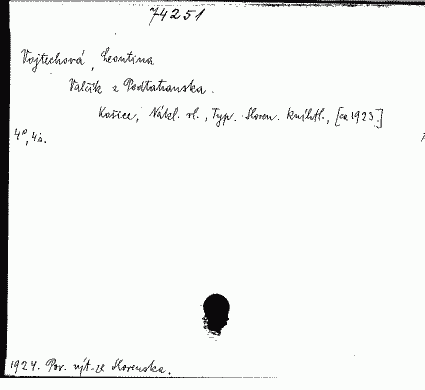 74251
Vojtechová, Leontina
Valčík z Podtatranska.
Košice, Nákl. vl., Typ. Sloven. kníhtl., [ca 1923.]
4°, 4 s.
1924. Por. výt. ze Slovenska.